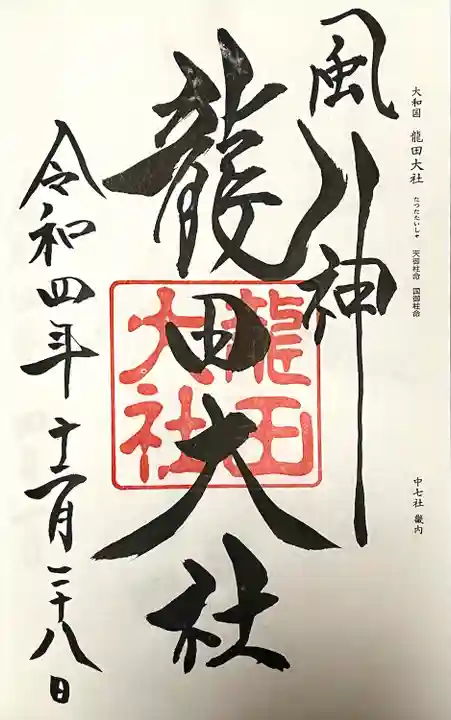 大和国 龍田大社 たつたたいしゃ 天御柱命 国御柱命
中七社 畿内
風神
龍田大社
龍田
大社
令和四年十二月二十八日